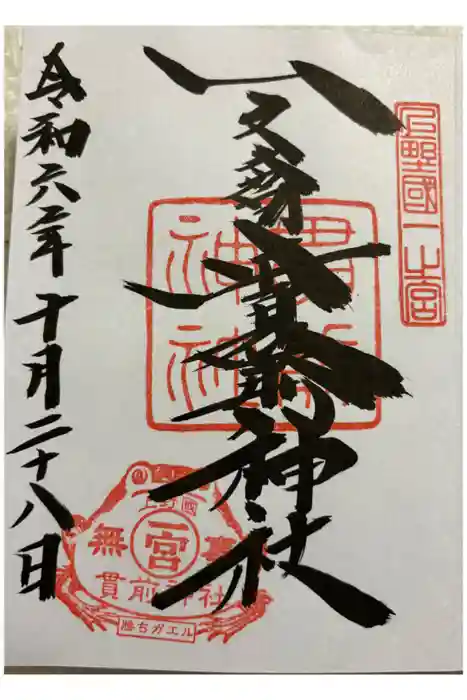 上野國一之宮
一之宮貫前神社
貫前
神社
令和六年十月二十八日
上野國
一宮
無事
貫前神社
勝ちガエル